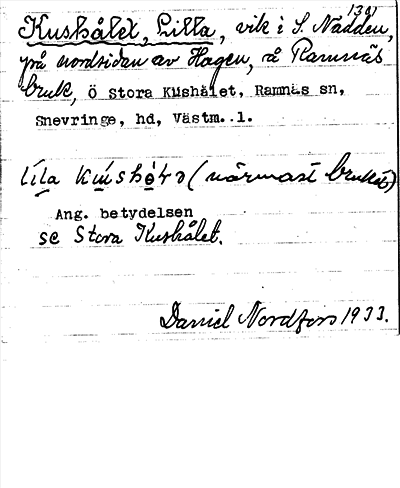 139)
Kushålet, Lilla, vik i S. Nadden,
på nordsidan av Hagen, å Ramnäs
bruk, ö Stora Kushålet, Ramnäs sn,
Snevringe, hd, Västm. l.
lila (närmast bruket)
Ang. betydelsen
se Stora Kushålet.
Daniel Nordfors 1933.